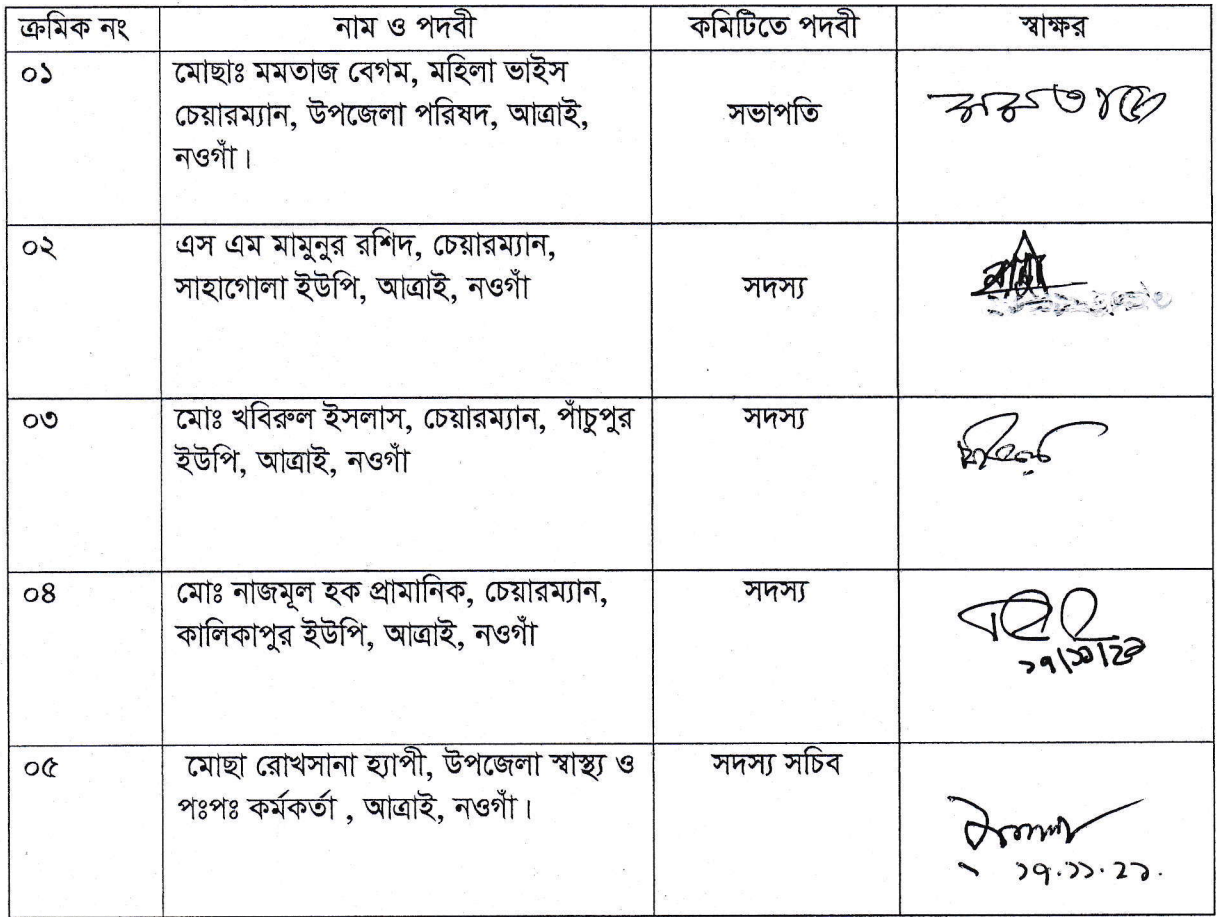 ক্রমিক নং নাম ও পদবী কমিটিতে পদবী স্বাক্ষর
০১ মোছাঃ মমতাজ বেগম, মহিলা ভাইস
চেয়ারম্যান, উপজেলা পরিষদ, আত্রাই, সভাপতি মমতাজ
নওগাঁ।
০২ এস এম মামুনুর রশিদ, চেয়ারম্যান,
সাহাগোলা ইউপি, আত্রাই, নওগাঁ সদস্য
০৩ মোঃ খবিরুল ইসলাস, চেয়ারম্যান, পাঁচুপুর সদস্য
ইউপি, আত্রাই, নওগাঁ
০৪ মোঃ নাজমূল হক প্রামানিক, চেয়ারম্যান, সদস্য
কালিকাপুর ইউপি, আত্রাই, নওগাঁ
০৫ মোছা রোখসানা হ্যাপী, উপজেলা স্বাস্থ্য ও সদস্য সচিব
পঃপঃ কর্মকর্তা , আত্রাই, নওগাঁ।
১৭.১১.২১.